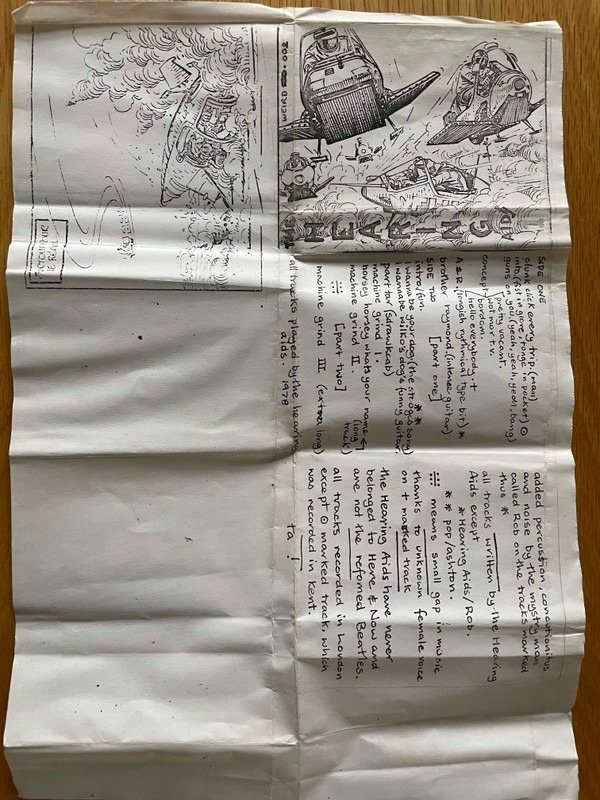 WEIRD 002
HEARING AIDS
SIDE ONE
clunk click every trip. (man)
into. (fist in glove, tongs in pocket) ⊙
guns on you. (yeah, yeah, yeah, bang)
pretty vacant.
concept wot nor t.v.
bordom.
hello everybody. +
A & R. (longish rythmical type bit) *
brother raymond. (intense guitar)
SIDE TWO [part one]
intro./pin.
i wanna be your dog. (the song) **
i wannabe wilko's dog's funny guitar.
part tar (sdrawkcab)
machine grind I.
horsey horsey whats your name (long track)
machine grind II.
::: [part two]
machine grind III (extra long)
all tracks played by the hearing
aids. 1978
added percusstion, concutionitus
and noise by the mystry man
called Rob on the tracks marked
thus *
all tracks written by the Hearing
Aids except
* Hearing Aids/Rob.
** pop/ashton.
::: means small gap in music
thanks to unknown female voice
on + marked track
the Hearing Aids have never
belonged to Here & Now and
are not the refomed Beatles.
all tracks recorded in London
except ⊙ marked track, which
was recorded in Kent.
ta!